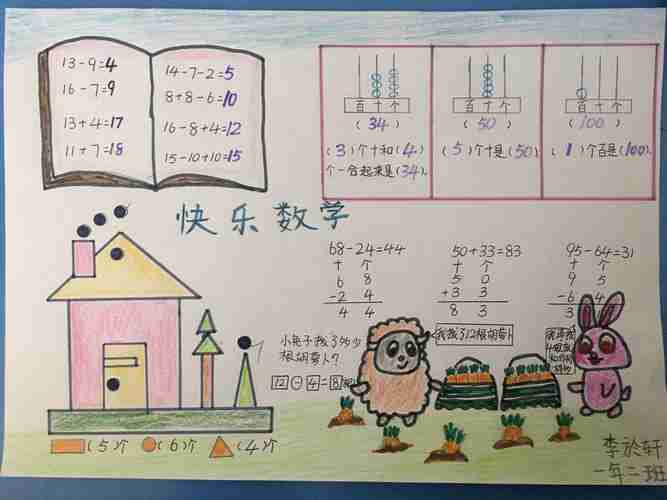 13-9=4
16-7=9
13+4=17
11+7=18
14-7-2=5
8+8-6=10
16-8+4=12
15-10+10=15
百十个
(34)
(3)个十和(4)
个一合起来是(34).
百十个
(50)
(5)个十是(50).
百十个
(100)
(1)个百是(100).
快乐数学
68-24=44
十 个
6 8
-2 4
4 4
50+33=83
十 个
5 0
+3 3
8 3
95-64=31
十 个
9 5
-6 4
3
小兔子拔了多少
根胡萝卜?
12-4=8
我拔了12根胡萝卜
(5)个 (6)个 (4)个
李於轩
一年二班